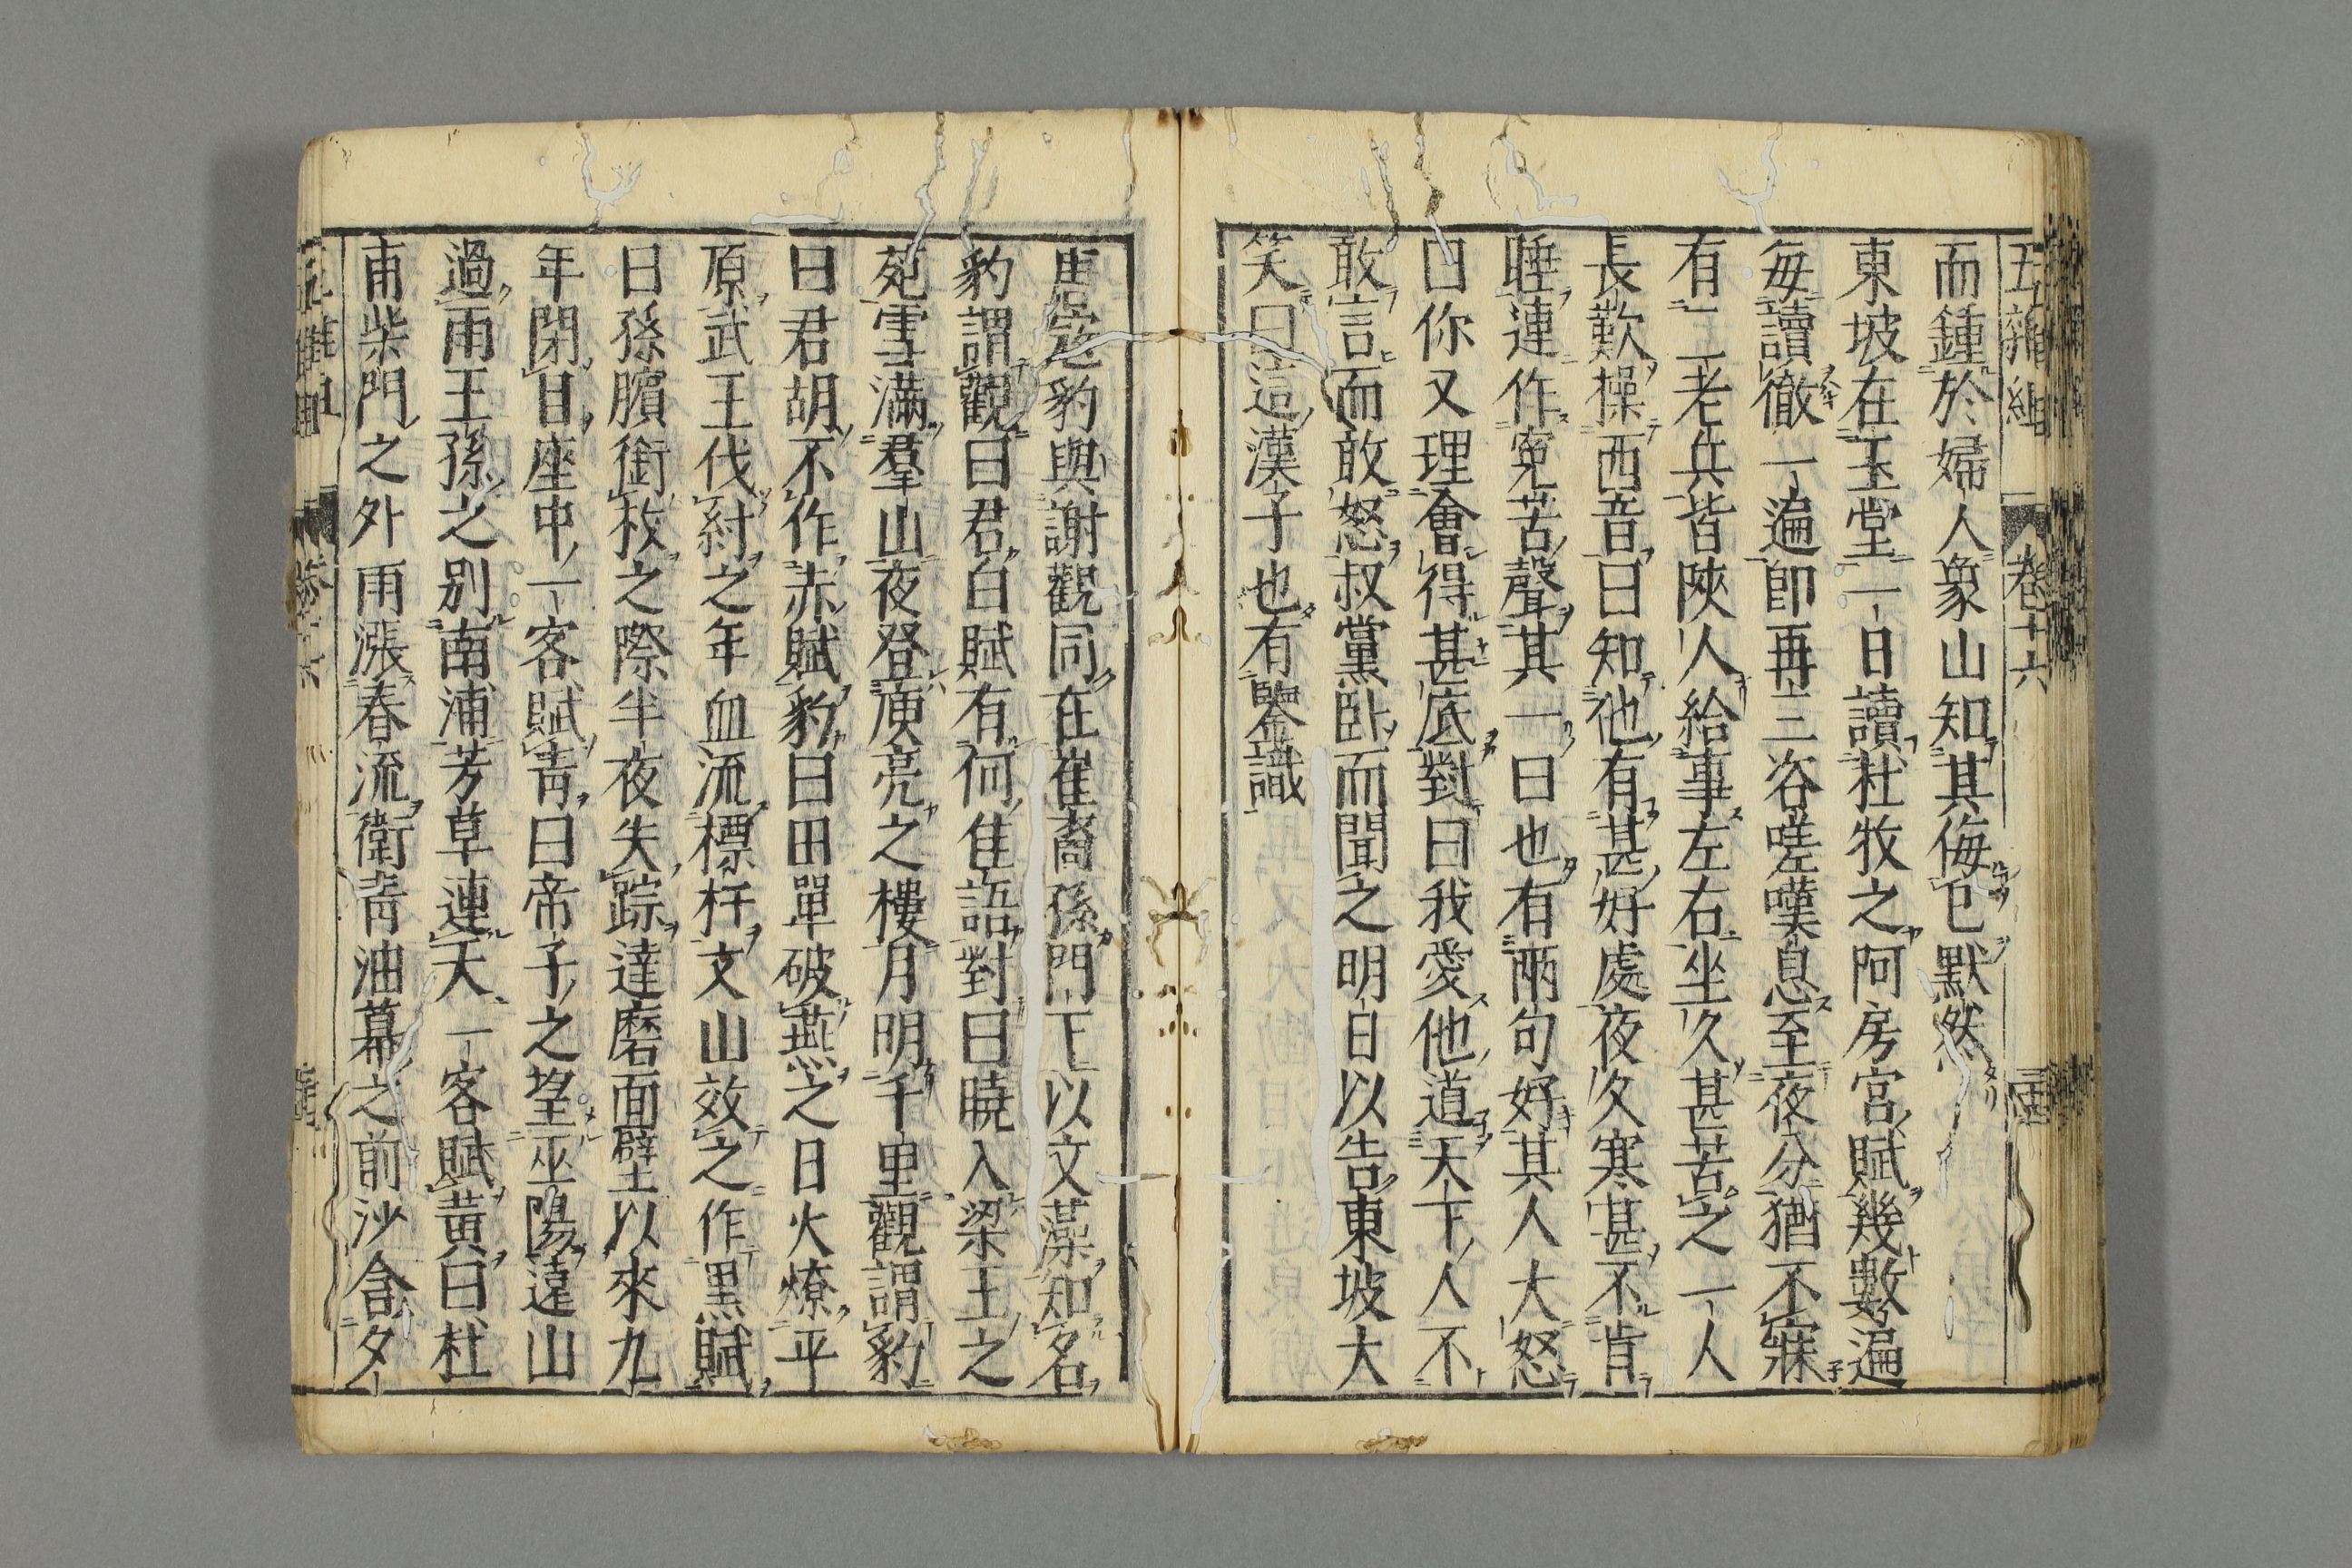 五雜組 卷十六
而鍾於婦人象山知其侮已默然
東坡在玉堂一日讀杜牧之阿房宮賦幾數遍
每讀徹一遍卽再三咨嗟嘆息至夜分猶不寐
有二老兵皆陝人給事左右坐久甚苦之一人
長歎操西音曰知他有甚好處夜久寒甚不肯
睡連作寃苦聲其一曰也有兩句好其人大怒
曰你又理會得甚底對曰我愛他道天下人不
敢言而敢怒叔黨臥而聞之明日以告東坡大
笑曰這漢子也有鑒識
唐寇豹與謝觀同在崔裔孫門下以文藻知名
豹謂觀曰君白賦有何佳語對曰曉入梁王之
苑雪滿羣山夜登庾亮之樓月明千里觀謂豹
曰君胡不作赤賦豹曰田單破燕之日火燎平
原武王伐紂之年血流標杵文山效之作黑賦
曰孫臏銜枚之際半夜失踪達磨面壁以來九
年閉目座中一客賦靑曰帝子之望巫陽遠山
過雨王孫之別南浦芳草連天一客賦黃曰杜
甫柴門之外雨漲春流衛靑油幕之前沙含夕